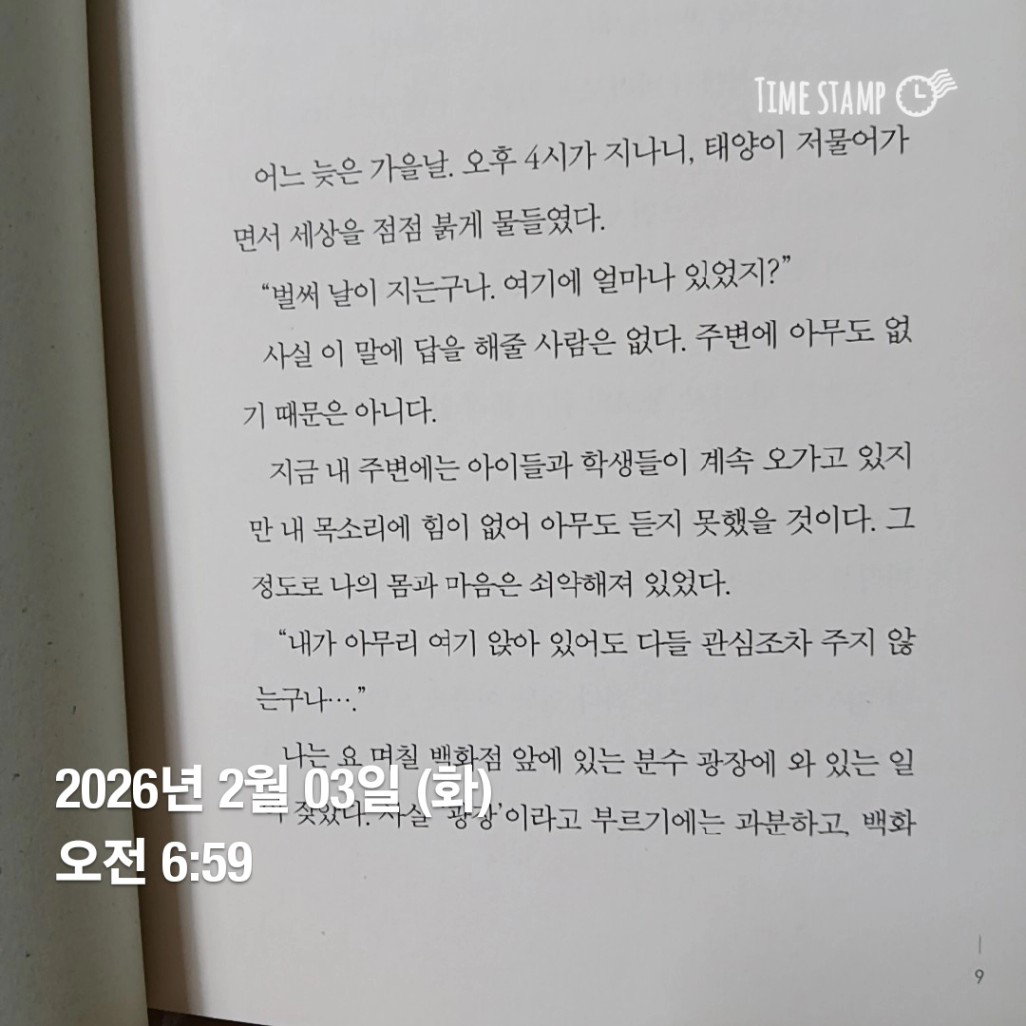 TIME STAMP
어느 늦은 가을날. 오후 4시가 지나니, 태양이 저물어가
면서 세상을 점점 붉게 물들였다.
“벌써 날이 지는구나. 여기에 얼마나 있었지?”
사실 이 말에 답을 해줄 사람은 없다. 주변에 아무도 없
기 때문은 아니다.
지금 내 주변에는 아이들과 학생들이 계속 오가고 있지
만 내 목소리에 힘이 없어 아무도 듣지 못했을 것이다. 그
정도로 나의 몸과 마음은 쇠약해져 있었다.
“내가 아무리 여기 앉아 있어도 다들 관심조차 주지 않
는구나….”
나는 요 며칠 백화점 앞에 있는 분수 광장에 와 있는 일
잦았다. 사실 ‘광장’이라고 부르기에는 과분하고, 백화
2026년 2월 03일 (화)
오전 6:59
9